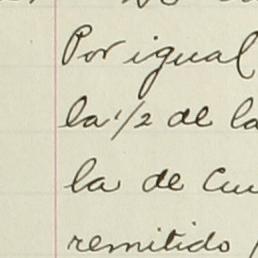 Por igual
la 1/2 de la
la de Cu
remitido